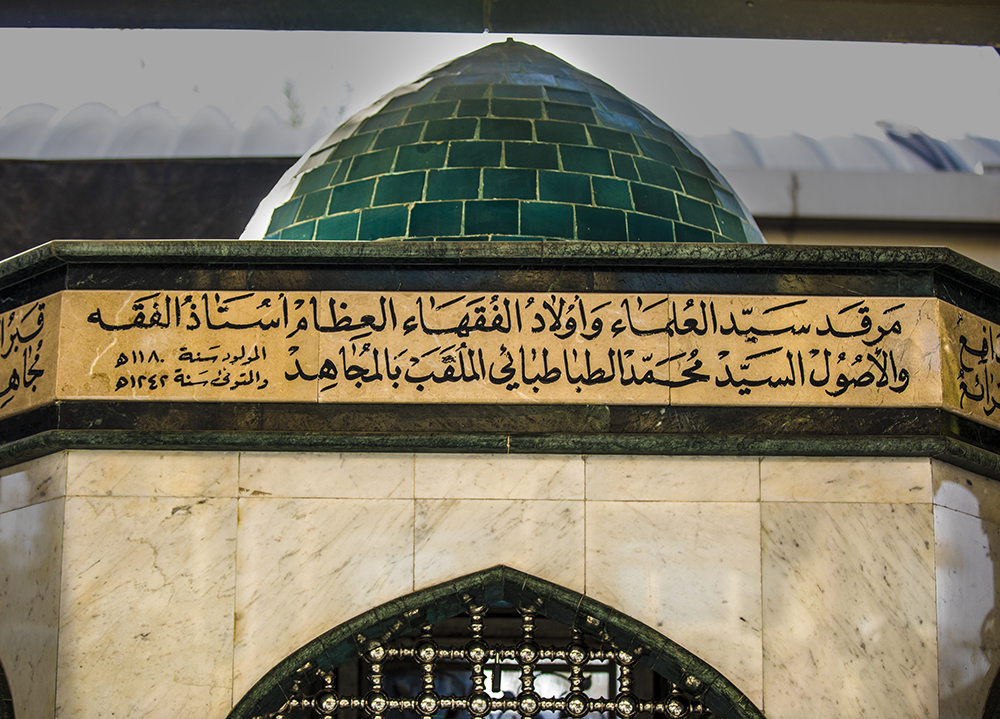 مَرقَد سَيّد العُلمَاء وَأوْلادُ الفُقَهَاء العِظامْ أسْتَاذُ الفَقه
والأصُولْ السَيّدْ مُحَمَّدْ الطباطبَائي المُلقَبْ بَالمُجَاهِدْ
المولود سَنة ١١٨٠ه
والمتوفى سَنة ١٢٤٢ه